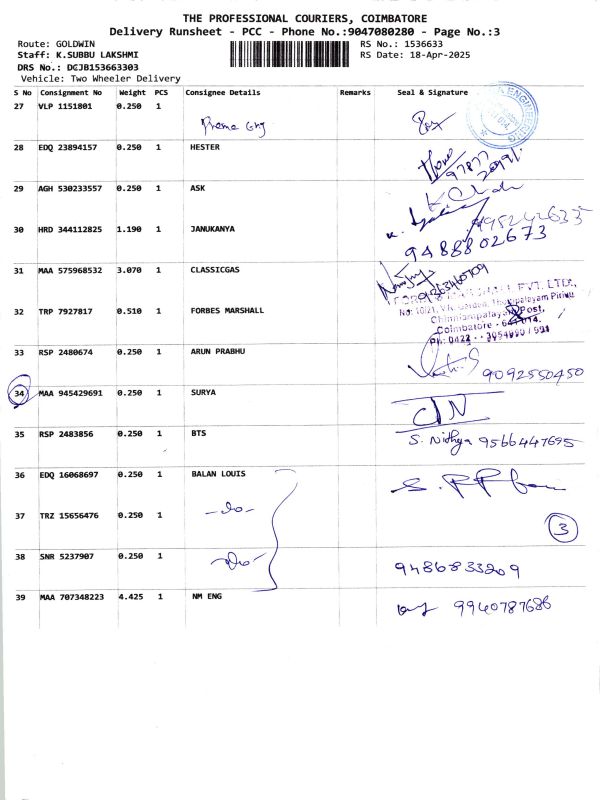 THE PROFESSIONAL COURIERS, COIMBATORE
Delivery Runsheet - PCC - Phone No.:9047080280 - Page No.:3
Route: GOLDWIN RS No.: 1536633
Staff: K.SUBBU LAKSHMI RS Date: 18-Apr-2025
DRS No.: DGJB153663303
Vehicle: Two Wheeler Delivery
S No Consignment No Weight PCS Consignee Details Remarks Seal & Signature
27 VLP 1151801 0.250 1
28 EDQ 23894157 0.250 1 HESTER
29 AGH 530233557 0.250 1 ASK
30 HRD 344112825 1.190 1 JANUKANYA
9488802673
31 MAA 575968532 3.070 1 CLASSICGAS
32 TRP 7927817 0.510 1 FORBES MARSHALL
Coimbatore - 641 014.
33 RSP 2480674 0.250 1 ARUN PRABHU
9092550450
34 MAA 945429691 0.250 1 SURYA
35 RSP 2483856 0.250 1 BTS S. Nithya 9566447695
36 EDQ 16068697 0.250 1 BALAN LOUIS
37 TRZ 15656476 0.250 1 -do-
3
38 SNR 5237907 0.250 1 -do- 9486833209
39 MAA 707348223 4.425 1 NM ENG 9940787686